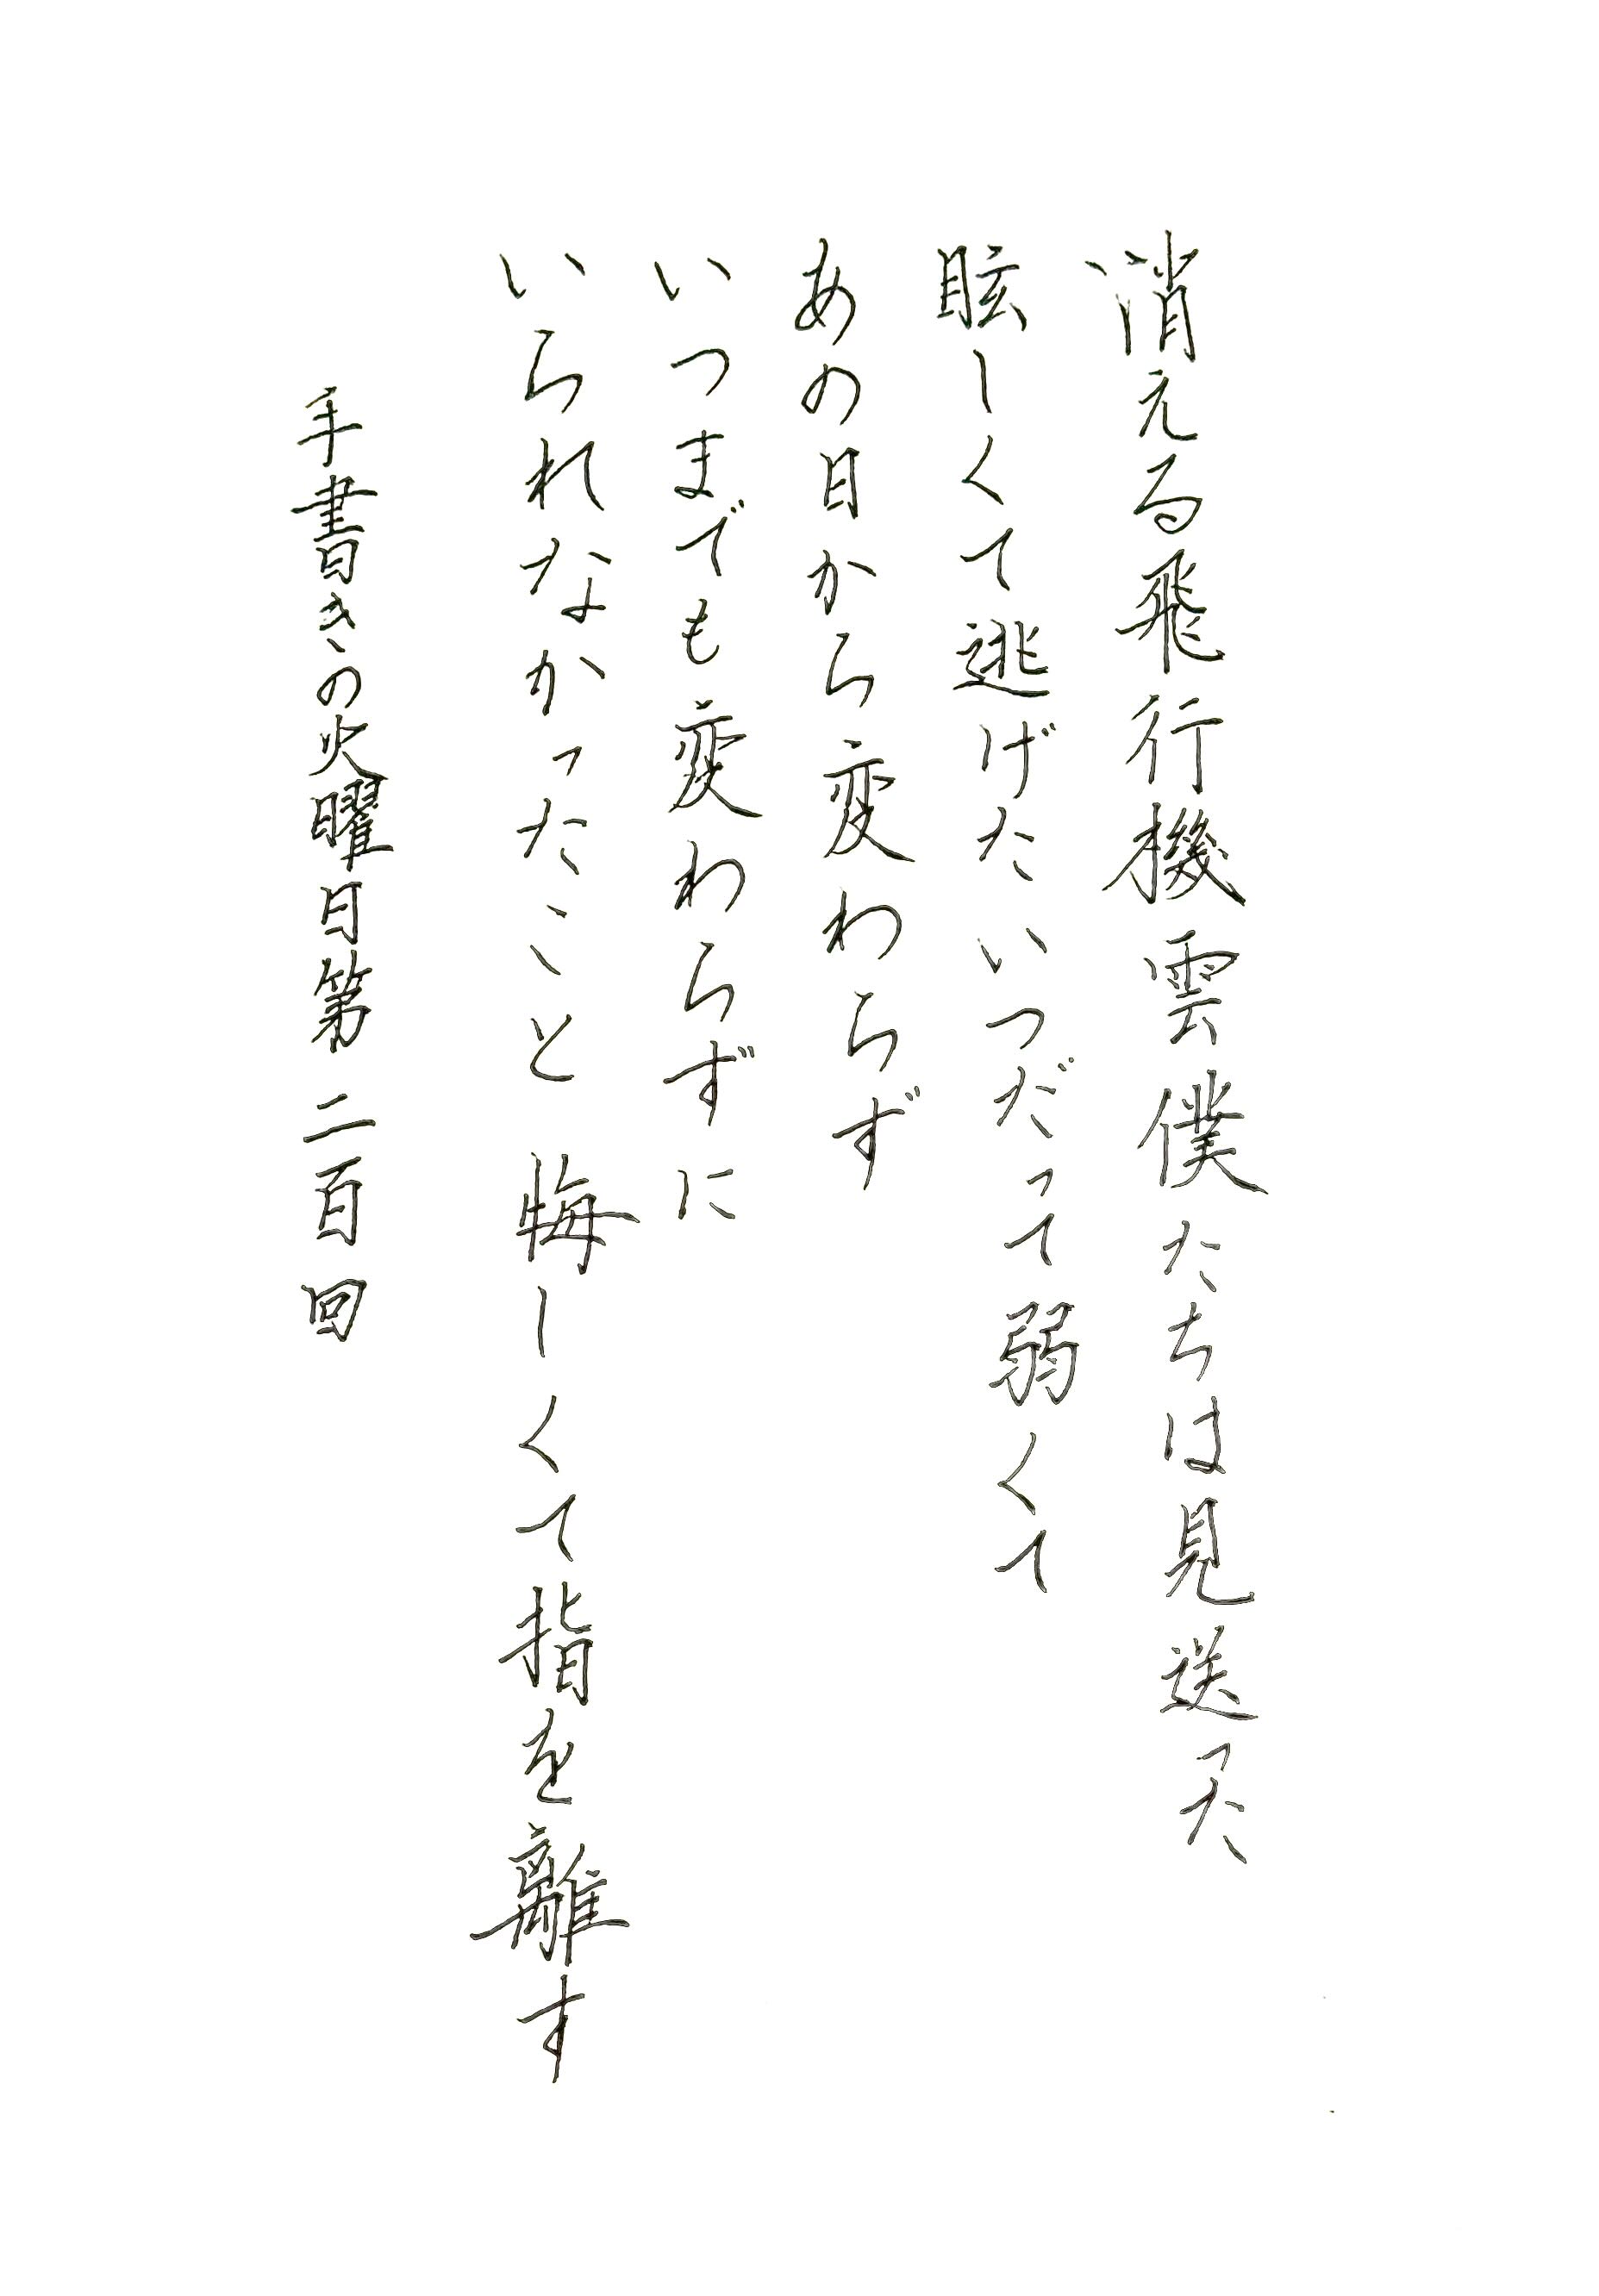 消える飛行機雲僕たちは見送った
眩しくて逃げたいつだって弱くて
あの日から変わらず
いつまでも変わらずに
いられなかったこと 悔しくて指を離す
手書きの火曜日第二百回